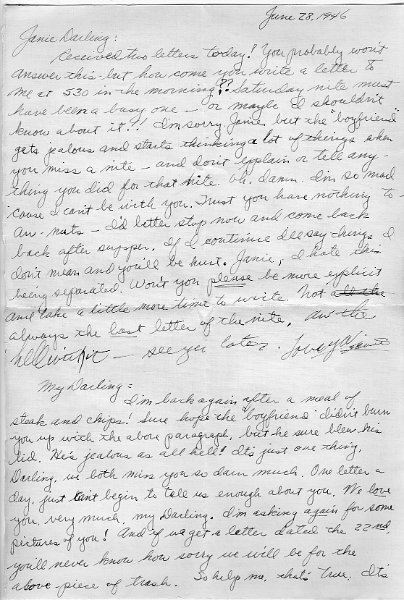 June 23, 1946
Janie Darling:
Received two letters today! You probably won't
answer this but how come you write a letter to
me at 530 in the morning?? Saturday nite must
have been a busy one — or maybe I shouldn't
know about it!! I'm sorry Janie but the "boyfriend"
gets jealous and starts thinking a lot of things when
you miss a nite — and don't explain or tell any-
thing you did for that nite. Oh. damn. I'm so mad
'cause I can't be with you. Trust you have nothing to-
an- nuts — I'd better stop now and come back
back after supper. If I continue I'll say things I
don't mean and you'll be hurt. Janie, I hate this
being separated. Won't you please be more explicit
and take a little more time to write. Not all the
always the last letter of the nite. Am the
— see yer later. Love ya
My Darling:
I'm back again after a meal of
steak and chips! Sure hope the "boyfriend" didn't burn
you up with the above paragraph, but he sure blew his
lid. He's jealous as all hell! It's just one thing,
Darling, we both miss you so darn much. One letter a
day, just can't begin to tell us enough about you. We love
you, very much, my Darling. I'm asking again for some
pictures of you! And if we get a letter dated the 22nd
you'll never know how sorry we will be for the
above piece of trash. So help me, that's true. It's